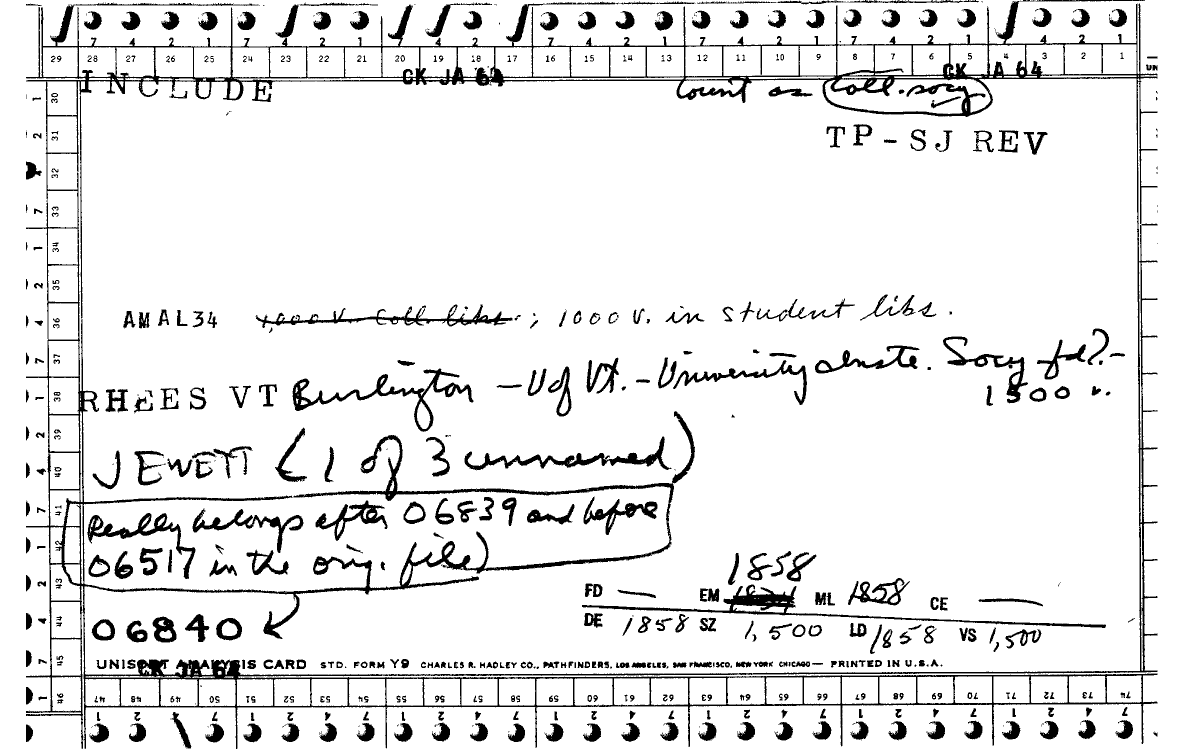 7 4 2 1 7 4 2 1 7 4 2 1 7 4 2 1 7 4 2 1 7 4 2 1 7 4 2 1
29 28 27 26 25 24 23 22 21 20 19 18 17 16 15 14 13 12 11 10 9 8 7 6 5 4 3 2 1 UN
CK JA 64 CK JA 64
INCLUDE Count as Coll. socy
TP-SJ REV
1 30
2 31
4 32
7 33
1 34
2 35
4 36
7 37
1 38
2 39
4 40
7 41
1 42
2 43
4 44
7 45
1 46
AMAL34 1,000 V. Coll. libs.; 1000 V. in student libs.
RHEES VT Burlington - U of Vt. - University Instte. Socy fd?. -
1500 v.
JEWETT (1 of 3 unnamed)
Really belongs after 06839 and before
06517 in the orig. file)
06840
1858
FD — EM 1834 ML 1858 CE —
DE 1858 SZ 1,500 LD 1858 VS 1,500
UNISORT ANALYSIS CARD STD. FORM Y9 CHARLES R. HADLEY CO., PATHFINDERS, LOS ANGELES, SAN FRANCISCO, NEW YORK CHICAGO — PRINTED IN U.S.A.
CK JA 64
47 48 49 50 51 52 53 54 55 56 57 58 59 60 61 62 63 64 65 66 67 68 69 70 71 72 73 74
1 2 4 7 1 2 4 7 1 2 4 7 1 2 4 7 1 2 4 7 1 2 4 7 1 2 4 7